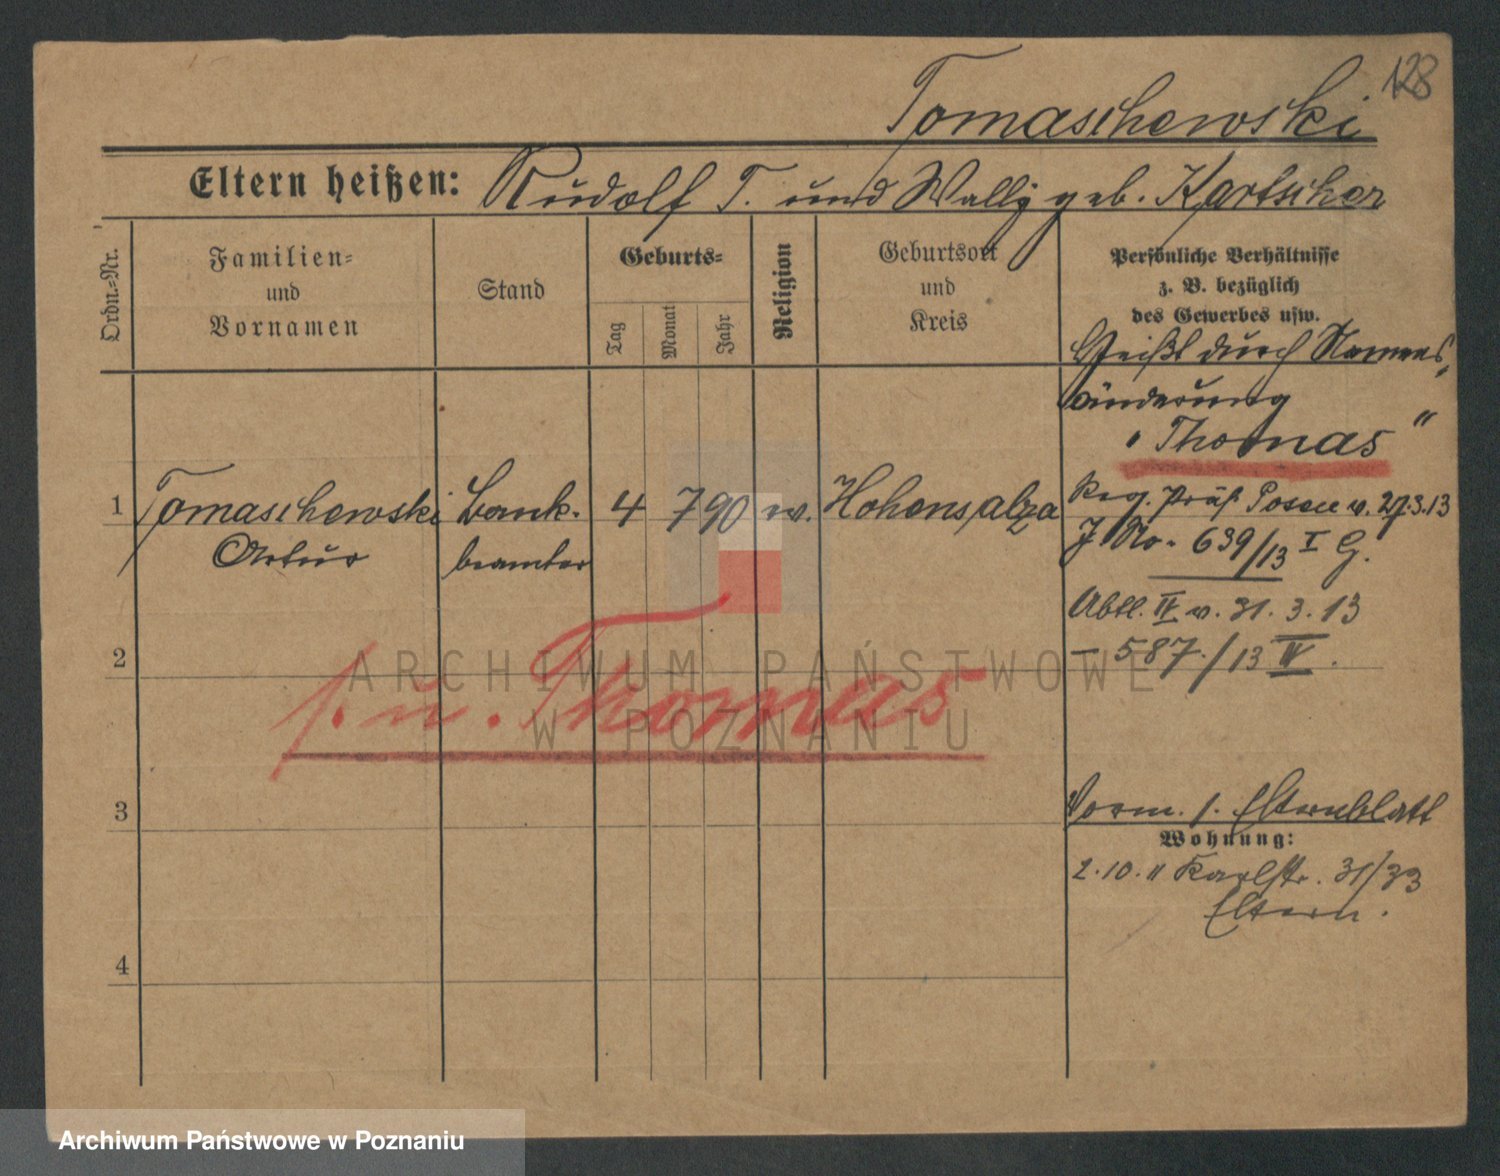 128
Tomaschewski
Eltern heißen: Rudolf T. und Wally geb. Kartscher
Ordn.=Nr.
Familien=
und
Vornamen
Stand
Geburts=
Tag
Monat
Jahr
Religion
Geburtsort
und
Kreis
Persönliche Verhältnisse
z. B. bezüglich
des Gewerbes usw.
Heißt durch Namens
änderung
"Thomas"
1 Tomaschewski Bank- 4 7 90 ev. Hohensalza
Artur beamter
Reg. Präs. Posen v. 27.3.13
J No. 639/13 I G.
Abtl. IV v. 31.3.13
– 587./13 IV.
2
s. u. Thomas
ARCHIWUM PAŃSTWOWE
W POZNANIU
3
Vorm. s. Elternblatt
Wohnung:
2.10.11 Karlstr. 31/33
Eltern.
4
Archiwum Państwowe w Poznaniu